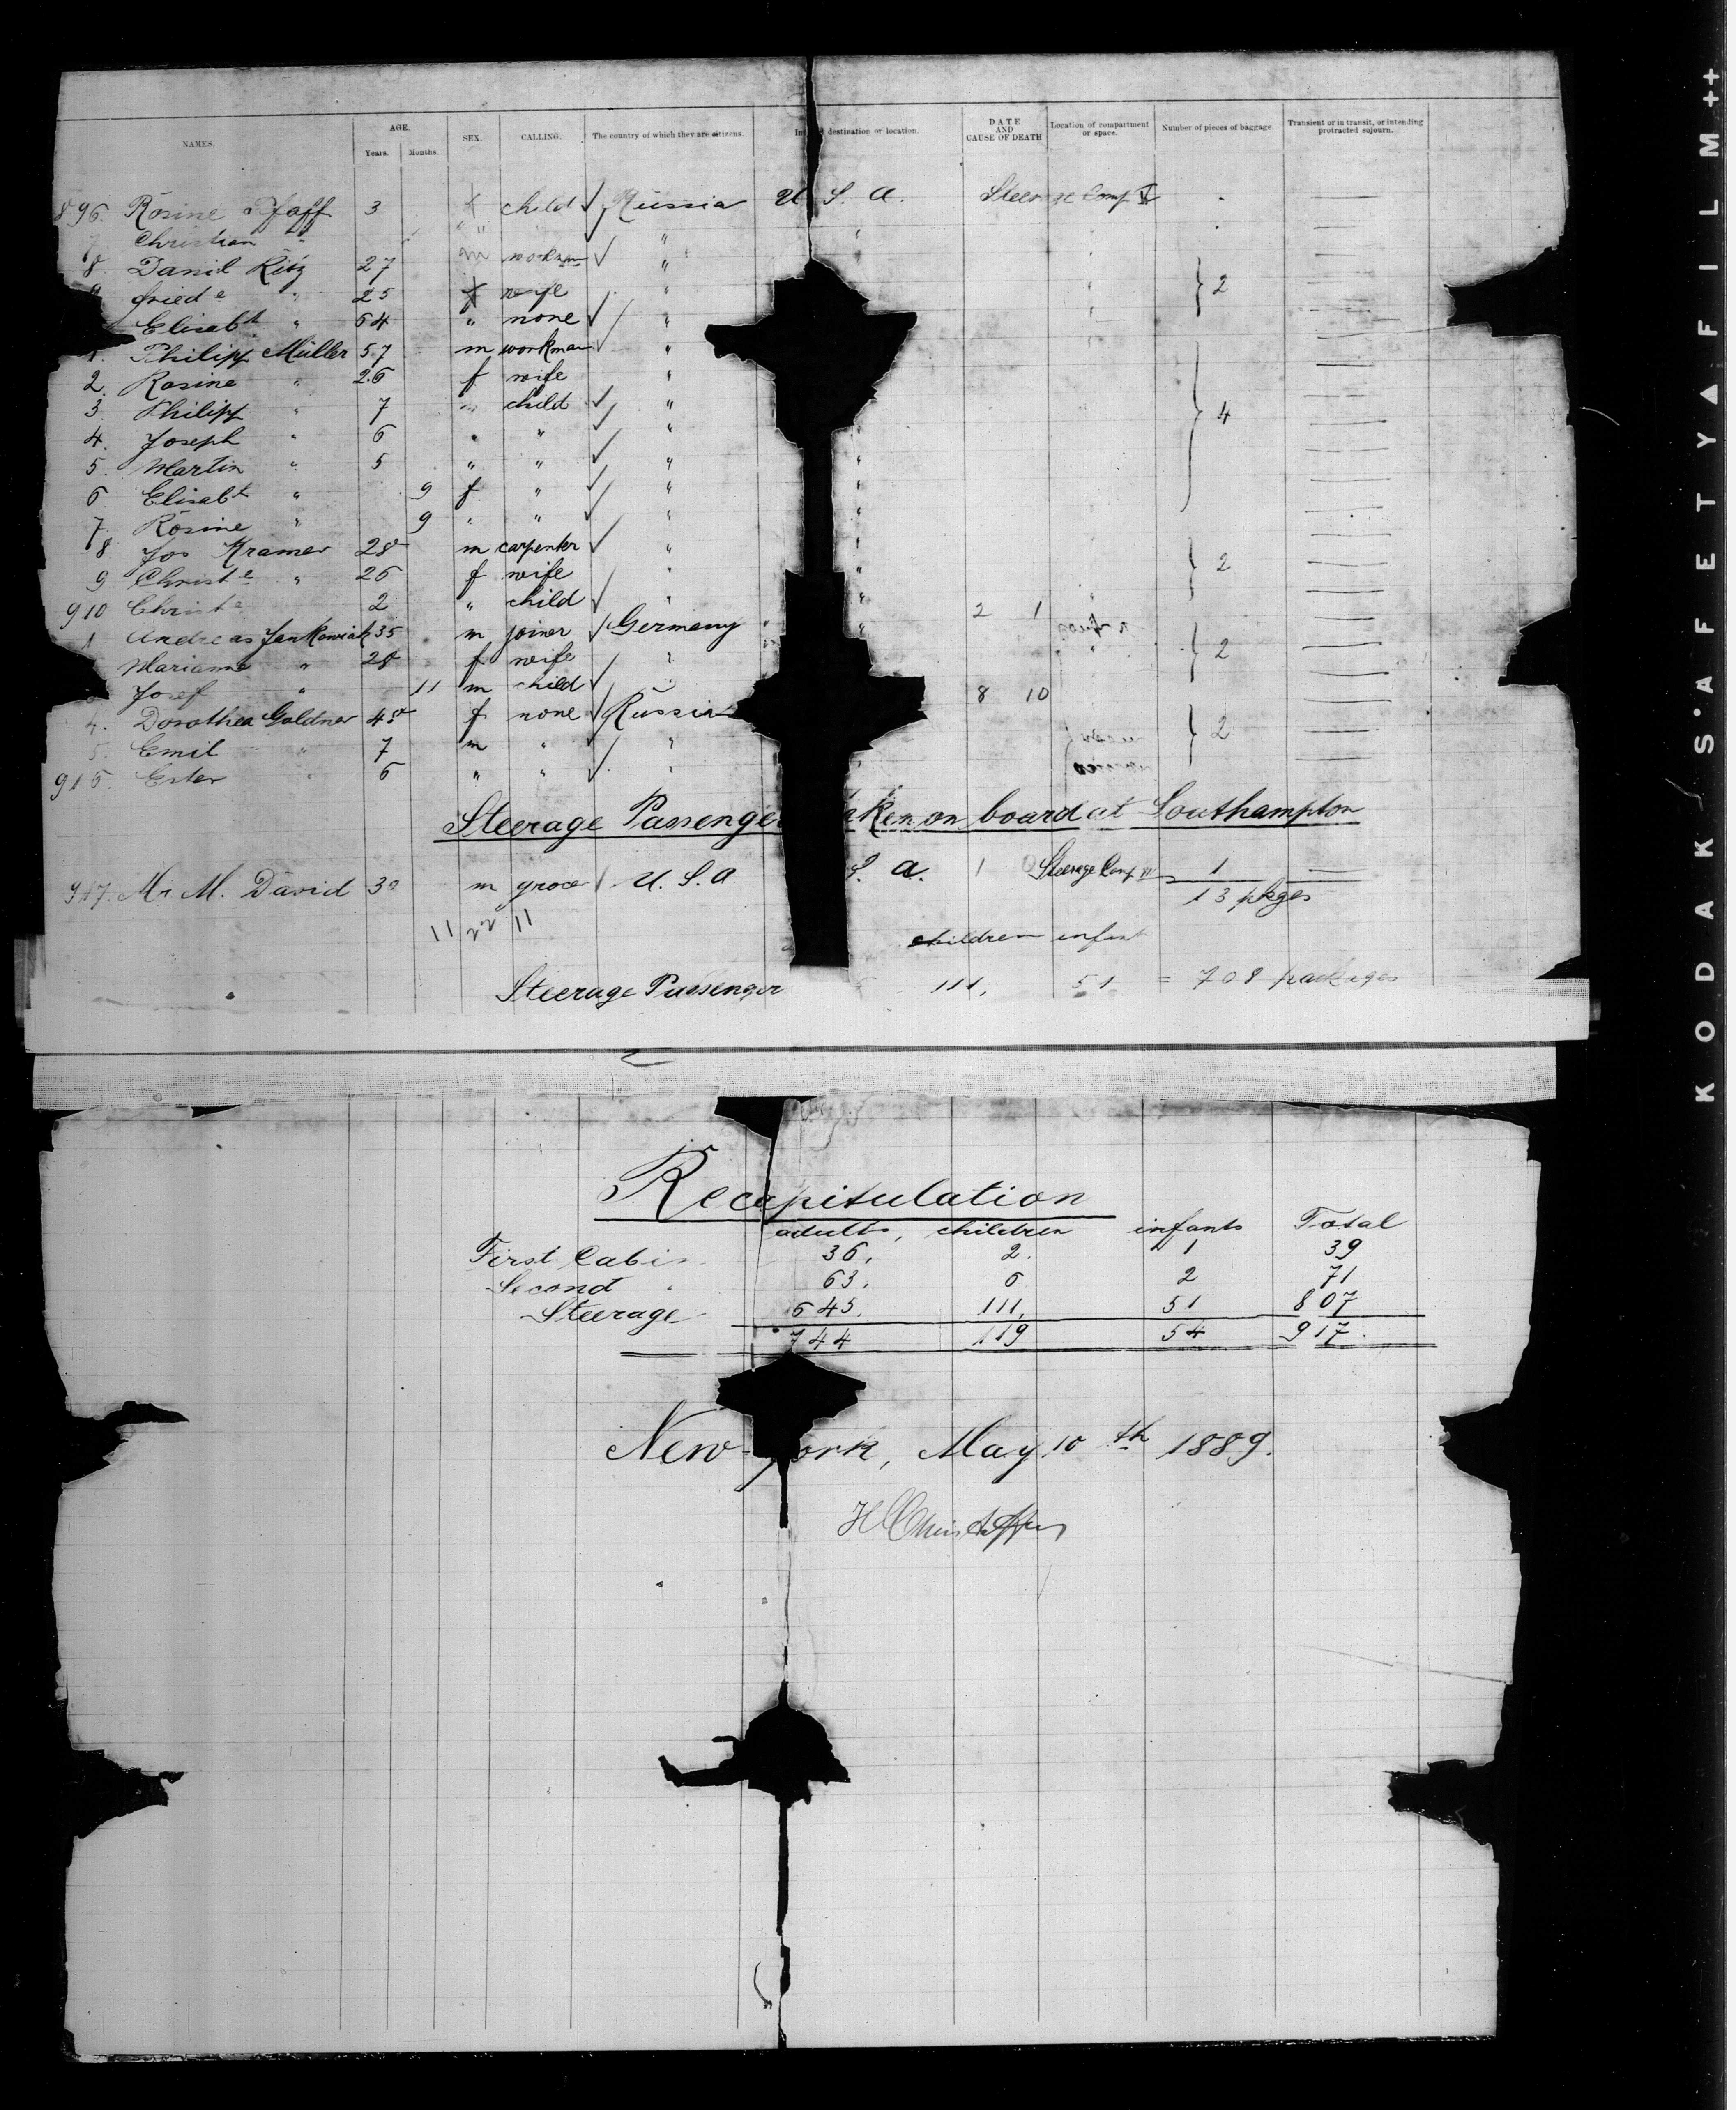 NAMES. AGE. Years. Months. SEX. CALLING. The country of which they are citizens. destination or location. DATE AND CAUSE OF DEATH Location of compartment or space. Number of pieces of baggage. Transient or in transit, or intending protracted sojourn.
896. Rosine Pfaff 3 f child ✓ Russia U. S. A. Steerage Comp V
Christian "
8. Daniel Ritz 27 m workman ✓ "
fried e " 25 f wife " 2
Elisabt " 64 " none ✓ "
1. Philipp Müller 57 m workman ✓ "
2. Rosine " 26 f wife "
3. Philipp " 7 child ✓ " 4
4. Joseph " 6 " " ✓ "
5. Martin " 5 " " ✓ "
6 Elisabt " 9 f " ✓ "
7. Rosine " 9 " " ✓ "
8 Jos Kramer 28 m carpenter ✓ "
9 Christe " 26 f wife " 2
910 Christe 2 " child ✓ "
1 Andreas Jankowiak 35 m joiner ✓ Germany 2 1
Marianna " 28 f wife " 2
Josef " 11 m child ✓ "
4. Dorothea Goldner 48 f none ✓ Russia 8 10
5. Emil " 7 m " ✓ " 2
916. Ester " 6 " " ✓ "
Steerage Passenge ken on board at Southampton
917. Mr M. David 30 m grocer U. S. A S. A. 1 Steerage Comp 1
13 pkges
11 22 11
children infant
Steerage Passenger 111, 51 = 708 packages
Recapitulation
adults, children infants Total
First Cabin 36, 2. 1 39
Second " 63. 6 2 71
Steerage 645. 111, 51 807
744 119 54 917.
New-York, May 10th 1889.
KODAK S·AFETY▲FILM ++